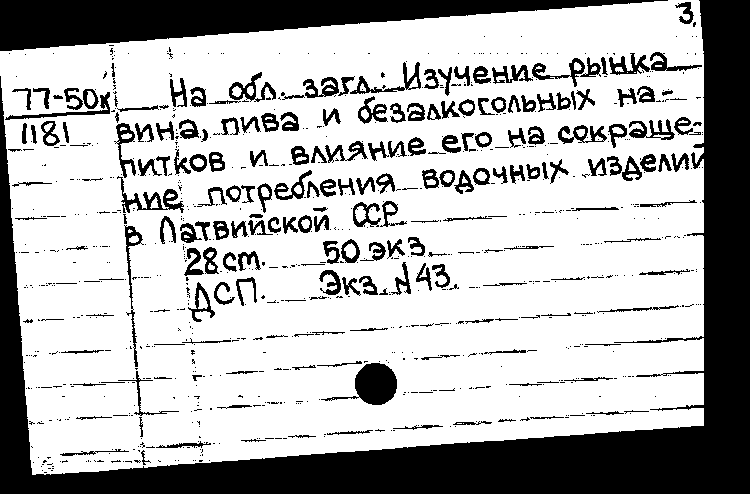 3.
77-50к
1181
На обл. загл.: Изучение рынка
вина, пива и безалкогольных на-
питков и влияние его на сокраще-
ние потребления водочных изделий
в Латвийской ССР
28 ст. 50 экз.
ДСП. Экз. N 43.